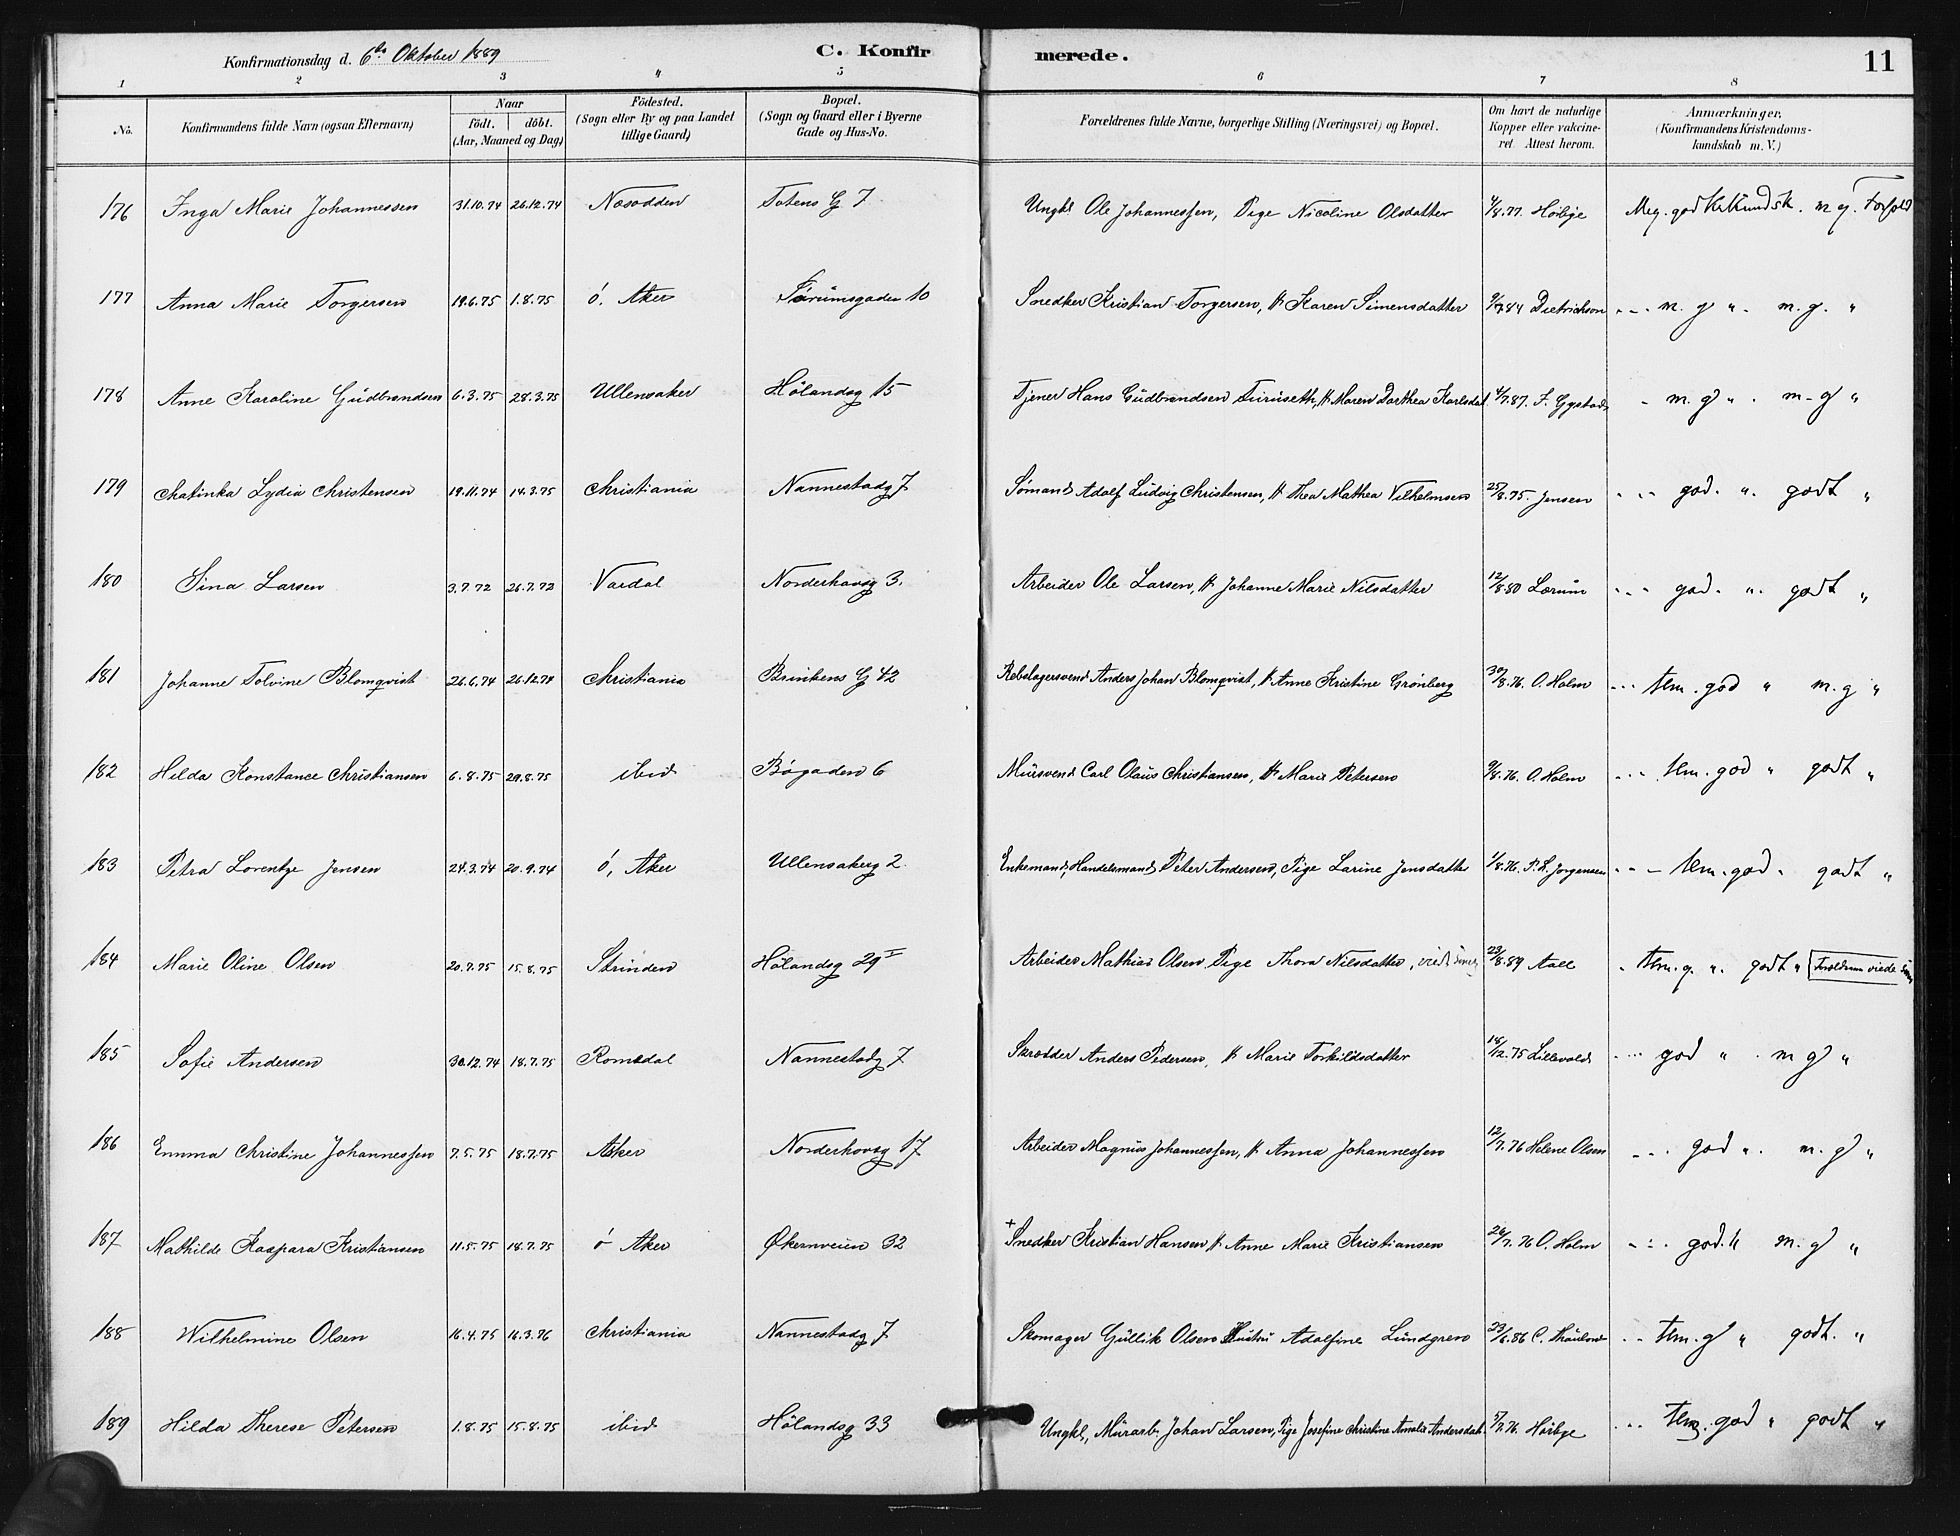 Konfirmationsdag d. 6te Oktober 1889 C. Konfirmerede. 11
1 2 3 4 5 6 7 8
No. Konfirmandens fulde Navn (ogsaa Efternavn) Naar født. døbt. (Aar, Maaned og Dag) Fødested. (Sogn eller By og paa Landet tillige Gaard) Bopæl. (Sogn og Gaard eller i Byerne Gade og Hus-No. Forældrenes fulde Navne, borgerlige Stilling (Næringsvei) og Bopæl. Om havt de naturlige Kopper eller vakcineret. Attest herom. Anmærkninger. (Konfirmandens Kristendomskundskab m. V.)
176 Inga Marie Johannessen 31.10.74 26.12.74 Næsodden Totens G 7 Ungkl Ole Johannessen, Pige Nicoline Olsdatter 4/8.77. Hørbye Meg. god Kr Kundsk. m g. Forhold
177 Anna Marie Torgersen 19.6.75 1.8.75 ö. Aker Sørumsgaden 10 Snedker Kristian Torgersen, H. Karen Simensdatter Dietrichson - - - m. g " . m. g. "
178 Anne Karoline Gudbrandsen 6.3.75 28.3.75 Ullensaker Hölandsg 15 Tjener Hans Gudbrandsen Furuseth, H. Maren Dorthea Karlsdat 4/7.87. F. Gystad - m. g " . m - g "
179 Chatinka Lydia Christensen 19.11.74 14.3.75 Christiania Nannestadg 7 Sømand Adolf Ludvig Christensen, H. Thea Mathea Vilhelmsen 25/8.75. Jensen - - - god. ". godt "
180 Sina Larsen 3.7.72 26.7.72 Vardal Norderhovsg 3. Arbeider Ole Larsen, H. Johanne Marie Nilsdatter 12/8.80 Lærum - - - god. ". godt "
181 Johanne Tolvine Blomqvist 26.6.74 26.12.74 Christiania Brinkens G 42 Rebslagersvend Anders Johan Blomqvist, H. Anne Kristine Grönberg 30/8.76. O. Holm - - - tem. god " m. g "
182 Hilda Konstance Christiansen 6.8.75 29.8.75 ibid Bögaden 6 Mursvend Carl Olaus Christiansen, H. Marie Petersen 9/8.76. O. Holm - - - tem. god " godt "
183 Petra Lorentze Jensen 24.3.74 20.9.74 ö. Aker Ullensakerg 2. Enkemand, Handelsmand Peter Andersen, Pige Larine Jensdatter 1/8.76. P. L. Jorgensen - - - tem. god - godt "
184 Marie Oline Olsen 20.7.75 15.8.75 Strinden Hölandsg 29 I Arbeider Mathias Olsen Pige Thora Nilsdatter, viede 23/8.89 Aall " tem. g. ". godt " Forældrene viede
185 Sofie Andersen 30.12.74 18.7.75 Romedal Nannestadg 7 Skrædder Anders Pedersen, H. Marie Torkildsdatter 18/12.75 Lillevold - - - god " . m g "
186 Emma Christine Johannessen 7.5.75 18.7.75 Aker Norderhovsg 17 Arbeider Magnus Johannessen, H. Anna Johannessen 12/7.76 Helene Olsen - - - god ". m. g "
187 Mathilde Kaspara Kristiansen 11.5.75 18.7.75 ö Aker Økernveien 32 + Snedker Kristian Hansen, H. Anne Marie Kristiansen 26/7.76 O. Holm - - - god. " m. g "
188 Wilhelmine Olsen 16.4.75 16.3.76 Christiania Nannestadg 7 Skomager Gullik Olsen Hustru Adolfine Lundgren 23/8.86 C. - - tem. g " godt. "
189 Hilda Therese Petersen 1.8.75 15.8.75 ibid Hölandsg 33 Ungkl, Murarb. Johan Larsen, Pige Josefine Christine Amalie Andersdat. Hørbye - - - tem. god " godt "